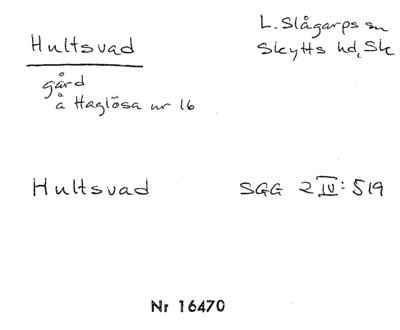 Hultsvad
L. Slågarps sn
Skytts hd, Sk
gård
å Haglösa nr 16
Hultsvad
SGG 2 IV: 519
Nr 16470